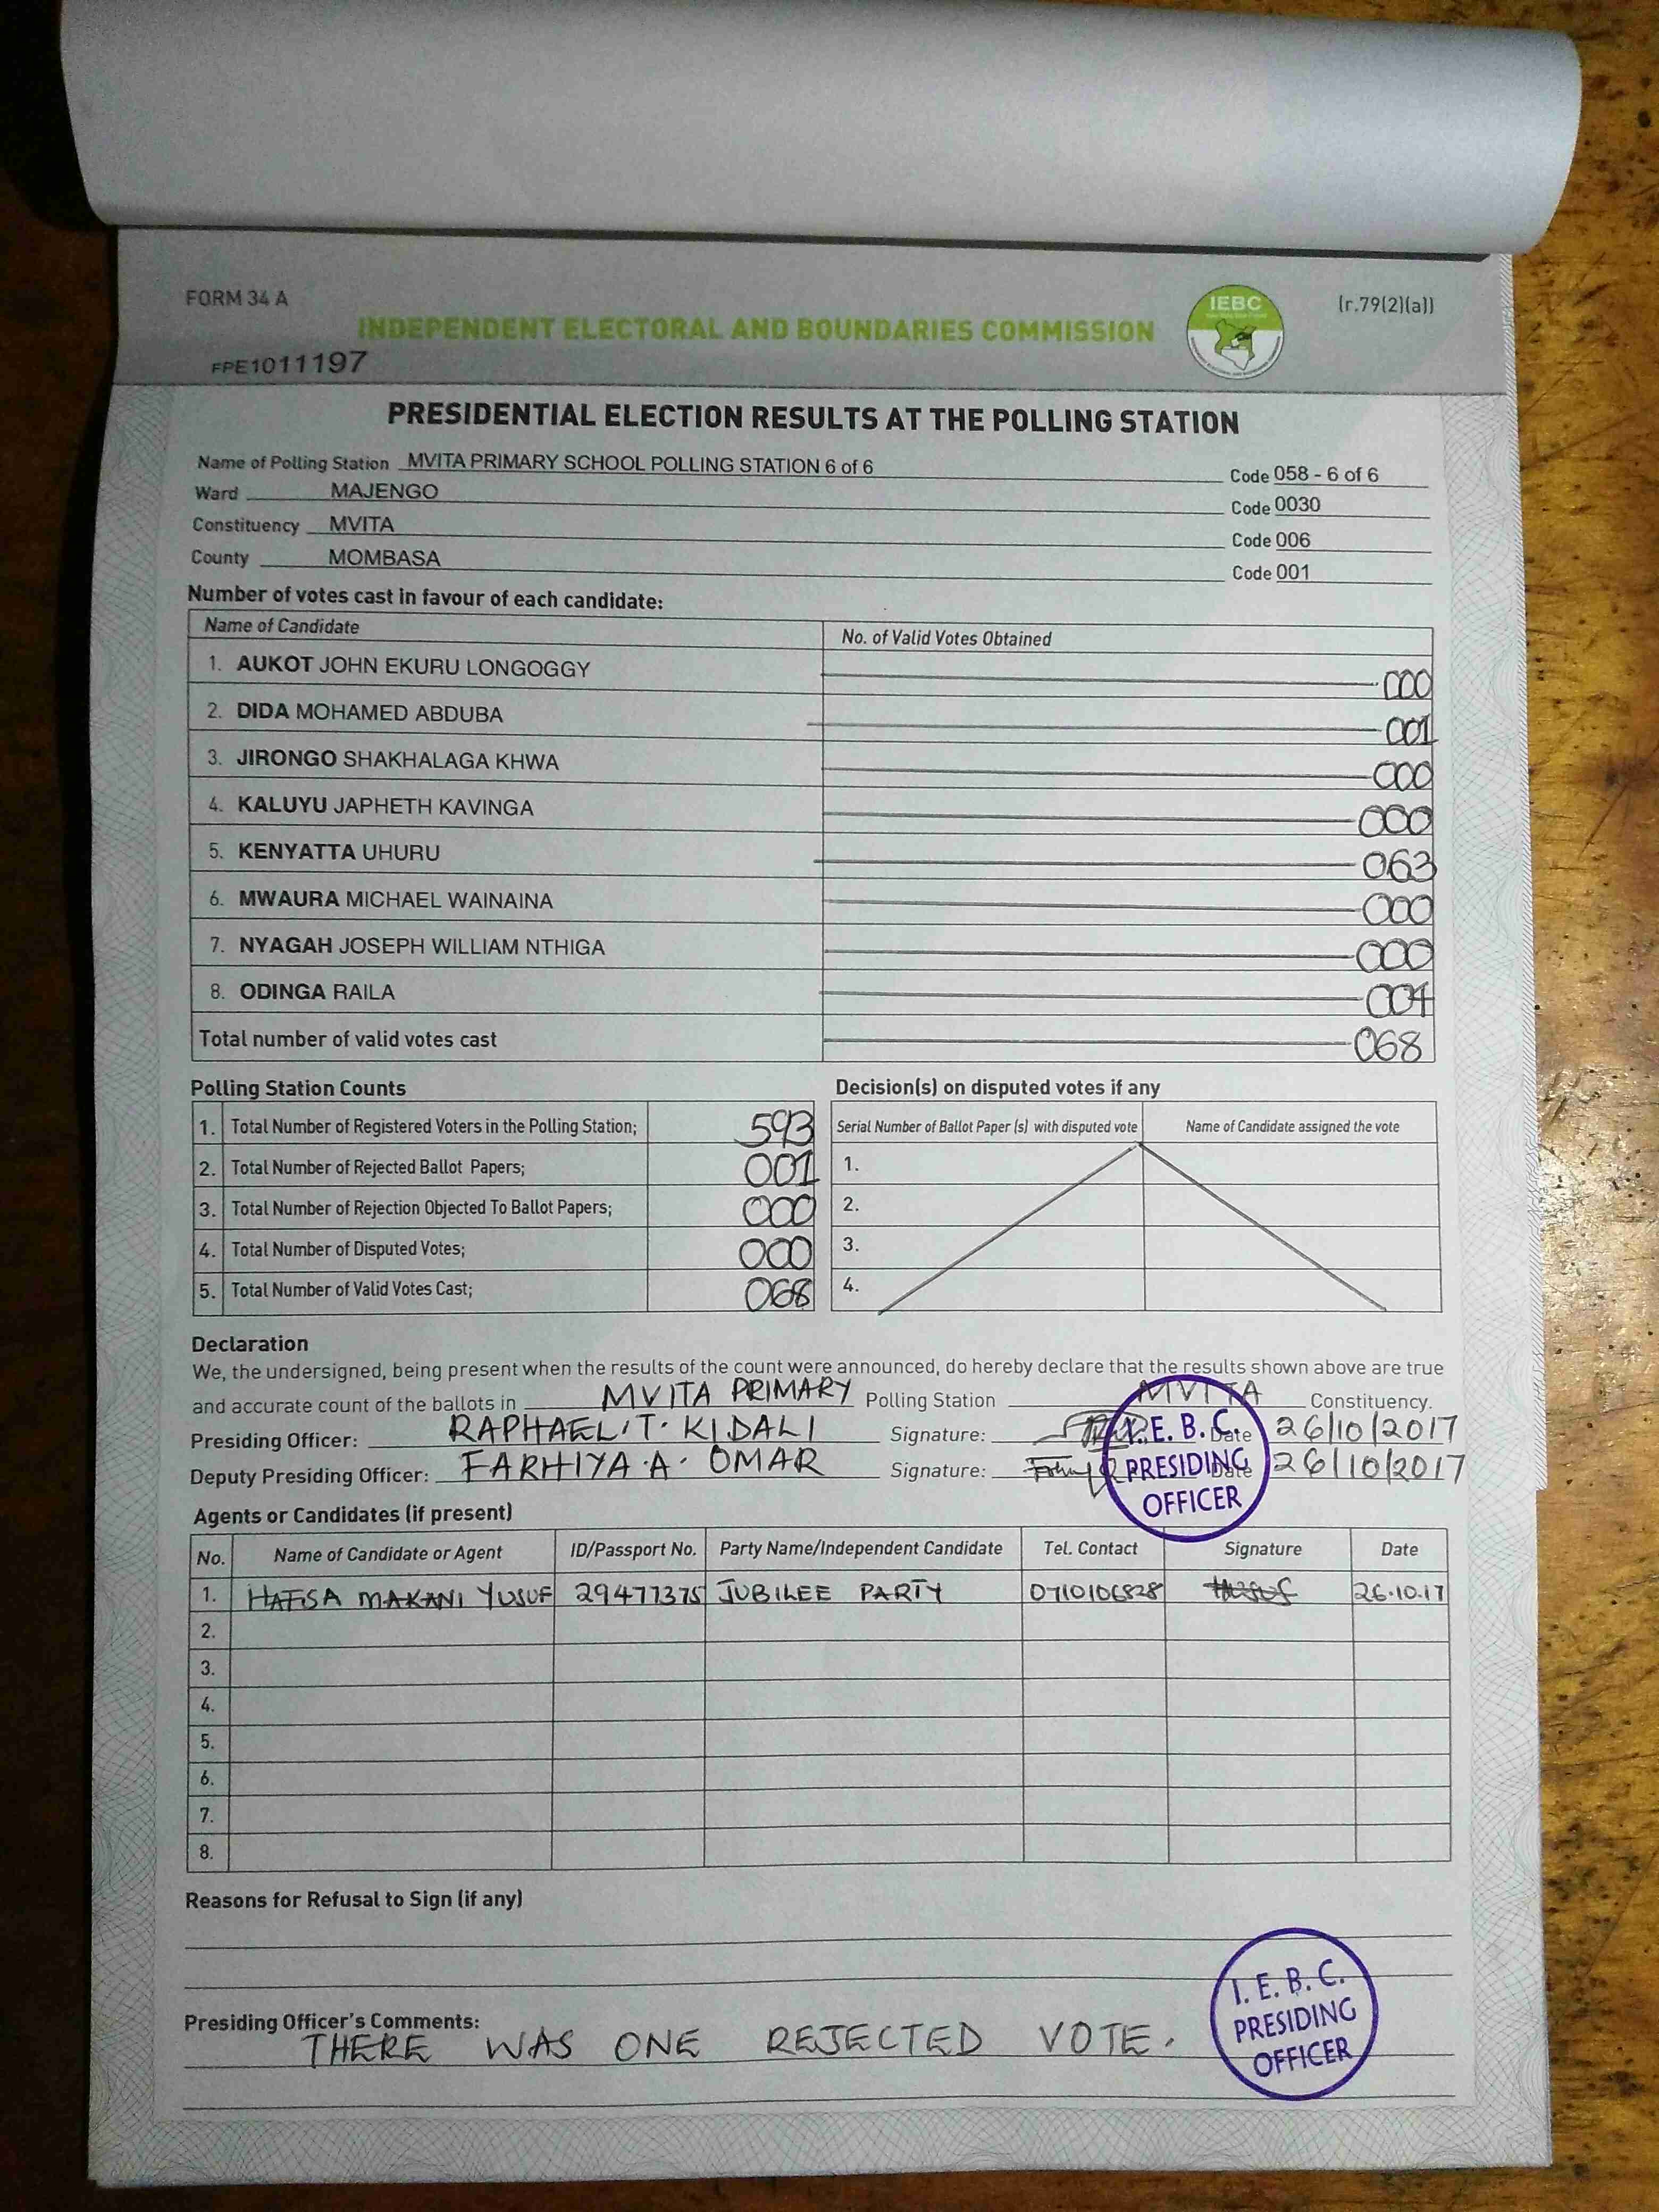 FORM 34 A
IEBC
(r.79(2)(a))
INDEPENDENT ELECTORAL AND BOUNDARIES COMMISSION
FPE1011197
PRESIDENTIAL ELECTION RESULTS AT THE POLLING STATION
Name of Polling Station MVITA PRIMARY SCHOOL POLLING STATION 6 of 6 Code 058 - 6 of 6
Ward MAJENGO Code 0030
Constituency MVITA Code 006
County MOMBASA Code 001
Number of votes cast in favour of each candidate:
Name of Candidate No. of Valid Votes Obtained
1. AUKOT JOHN EKURU LONGOGGY 000
2. DIDA MOHAMED ABDUBA 001
3. JIRONGO SHAKHALAGA KHWA 000
4. KALUYU JAPHETH KAVINGA 000
5. KENYATTA UHURU 063
6. MWAURA MICHAEL WAINAINA 000
7. NYAGAH JOSEPH WILLIAM NTHIGA 000
8. ODINGA RAILA 004
Total number of valid votes cast 068
Polling Station Counts
1. Total Number of Registered Voters in the Polling Station; 593
2. Total Number of Rejected Ballot Papers; 001
3. Total Number of Rejection Objected To Ballot Papers; 000
4. Total Number of Disputed Votes; 000
5. Total Number of Valid Votes Cast; 068
Decision(s) on disputed votes if any
Serial Number of Ballot Paper (s) with disputed vote Name of Candidate assigned the vote
1.
2.
3.
4.
Declaration
We, the undersigned, being present when the results of the count were announced, do hereby declare that the results shown above are true
and accurate count of the ballots in MVITA PRIMARY Polling Station MVITA Constituency.
Presiding Officer: RAPHAEL.T. KIDALI Signature: Date 26/10/2017
Deputy Presiding Officer: FARHIYA.A. OMAR Signature: Date 26/10/2017
I.E.B.C.
PRESIDING
OFFICER
Agents or Candidates (if present)
No. Name of Candidate or Agent ID/Passport No. Party Name/Independent Candidate Tel. Contact Signature Date
1. HAFSA MAKANI YUSUF 29477375 JUBILEE PARTY 0710106828 26.10.17
2.
3.
4.
5.
6.
7.
8.
Reasons for Refusal to Sign (if any)
Presiding Officer's Comments:
THERE WAS ONE REJECTED VOTE.
I.E.B.C.
PRESIDING
OFFICER